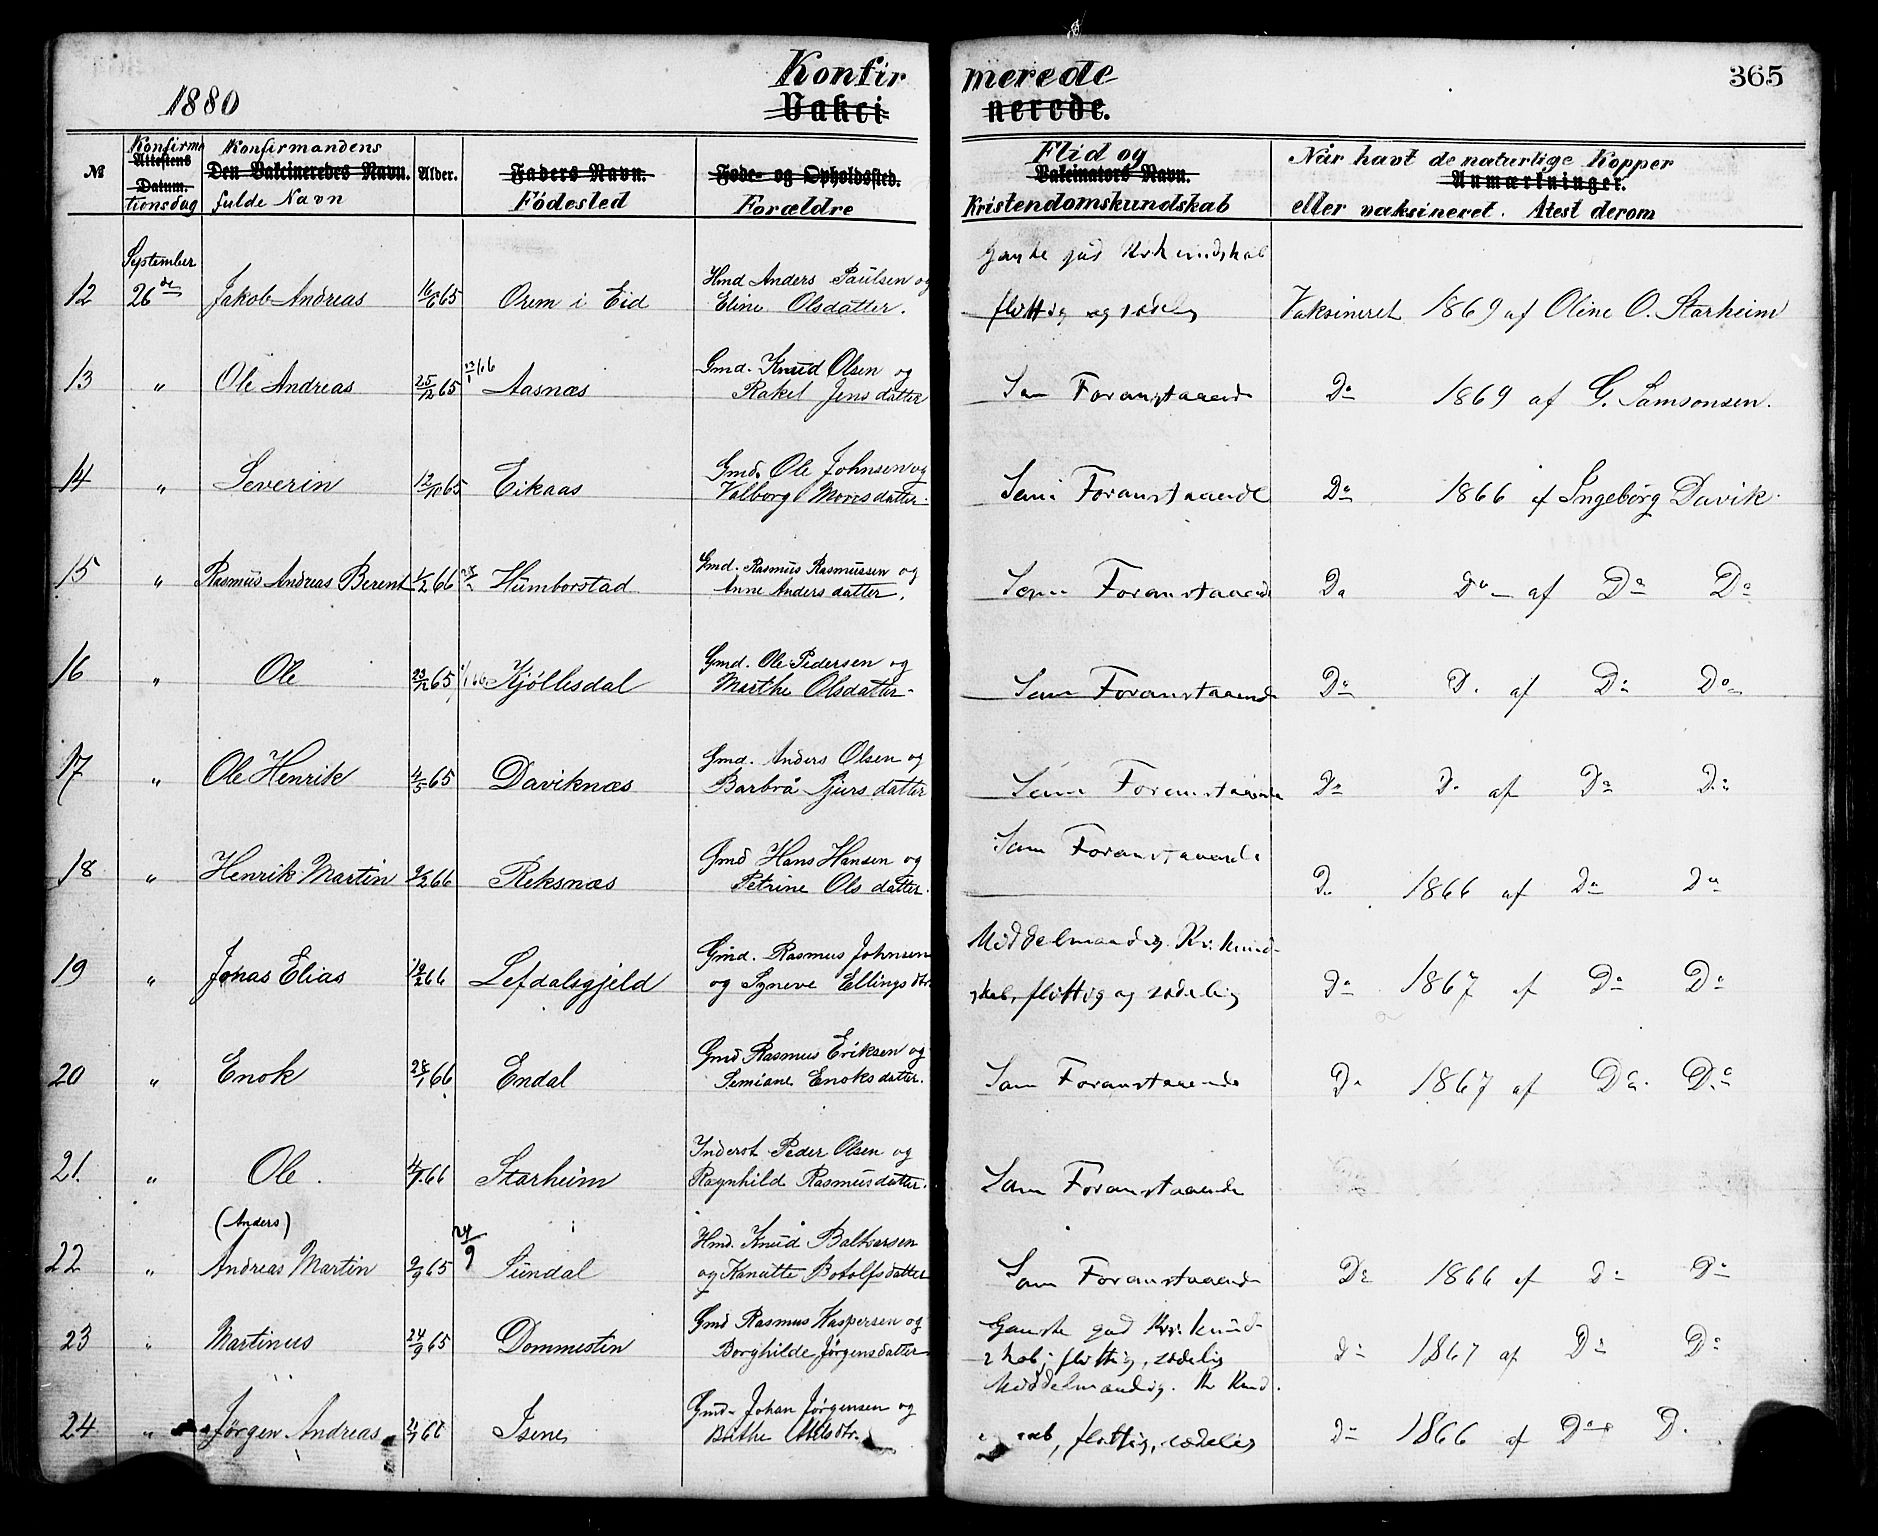 365
1880
Konfirmerede
Vakcinerede.
№ Konfirmationsdag Attestens Datum. Konfirmandens fulde Navn Den Vakcineredes Navn. Alder. Faders Navn. Fødested Føde- og Opholdssted. Forældre Flid og Kristendomskundskab Vakcinators Navn. Når havt de naturlige Kopper eller vaksineret. Atest derom Anmærkninger.
September
Ganske god
12 26de Jakob Andreas 65 Orem i Eid Hmd Anders Paulsen og
Eline Olsdatter. flittig og sædelig Vaksineret 1869 af Oline O. Starheim
13 " Ole Andreas 25/12 65 Aasnæs Gmd. Knud Olsen og
Rakel Jensdatter Som Foranstaaende Do 1869 af G. Samsonsen.
14 " Severin 65 Eikaas Gmd. Ole Johnsen og
Valborg Monsdatter. Som Foranstaaende Do 1866 af Ingeborg Davik.
15 " Rasmus Andreas Berent 1/2 66 Humborstad Gmd. Rasmus Rasmussen og
Anne Andersdatter. Som Foranstaaende Do Do af Do Do
16 " Ole 23/12 65 Kjøllesdal Gmd. Ole Pedersen og
Marthe Olsdatter. Som Foranstaaende Do Do af Do Do
17 " Ole Henrik 4/5 65 Daviknæs Gmd. Anders Olsen og
Barbrå Sjursdatter Som Foranstaaende Do Do af Do Do
18 " Henrik Martin 66 Reksnæs Gmd Hans Hansen og
Petrine Olsdatter. Som Foranstaaende Do 1866 af Do Do
19 " Jonas Elias 66 Lefdalsgjeld Gmd. Rasmus Johnsen
og Syneve Ellingsdtr. Middelmaadig Kr. kund-
skab, flittig og sædelig Do 1867 af Do Do
20 " Enok 28/1 66 Endal Gmd Rasmus Eriksen og
Semiane Enoksdatter. Som Foranstaaende Do 1867 af Do. Do
21. " Ole. 66 Starheim Inderst Peder Olsen og
Ragnhild Rasmusdatter. Som Foranstaaende
(Anders)
22 " Andreas Martin 9/9 65 24/9 Sundal Hmd. Knud Baltsersen
og Kanutte Botolfsdatter Som Foranstaaende Do 1866 af Do Do
23 " Martinus 24/9 65 Dommestin Gmd Rasmus Kaspersen og
Borghilde Jørgensdatter Ganske god Kr. kund-
skab, flittig, sædelig Do 1867 af Do Do
24 " Jørgen Andreas Isene Gmd. Johan Jørgensen og
Middelmaadig. Kr Kund.
flittig, sædelig Do 1866 af Do D.